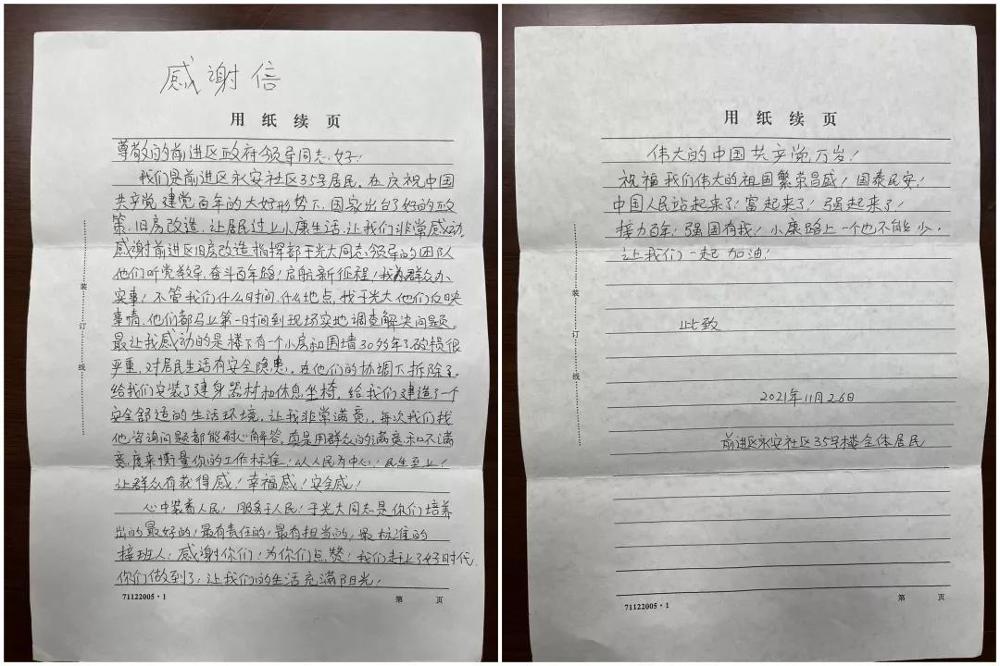 感谢信
用纸续页
尊敬的前进区政府领导同志,好!
我们是前进区永安社区35号居民,在庆祝中国
共产党建党百年的大好形势下,国家出台了好的政
策,旧房改造,让居民过上小康生活,让我们非常感动,
感谢前进区旧房改造指挥部于光大同志领导的团队
他们听党教导,奋斗百年路!启航新征程!我为群众办
实事!不管我们什么时间,什么地点,找于光大他们反映
事情,他们都马上第一时间到现场实地调查解决问题,
最让我感动的是楼下有一个小房和围墙30多年了破损很
严重,对居民生活有安全隐患,在他们的协调下拆除了,
给我们安装了建身器材和休息坐椅,给我们建造了一个
安全舒适的生活环境,让我非常满意,每次我们找
他咨询问题都能耐心解答,真是用群众的满意和不满
意度来衡量你的工作标准,以人民为中心!民生至上!
让群众有获得感!幸福感!安全感!
心中装着人民!服务于人民!于光大同志是你们培养
出的最好的!最有责任的!最有担当的,最标准的
接班人!感谢你们!为你们点赞!我们赶上了好时代,
你们做到了,让我们的生活充满阳光!
71122005·1
第 页
装
订
线
伟大的中国共产党万岁!
祝福我们伟大的祖国繁荣昌盛!国泰民安!
中国人民站起来了!富起来了!强起来了!
接力百年!强国有我!小康路上一个也不能少,
让我们一起加油!
此致
2021年11月26日
前进区永安社区35号楼全体居民
用纸续页
装
订
线
71122005·1
第 页